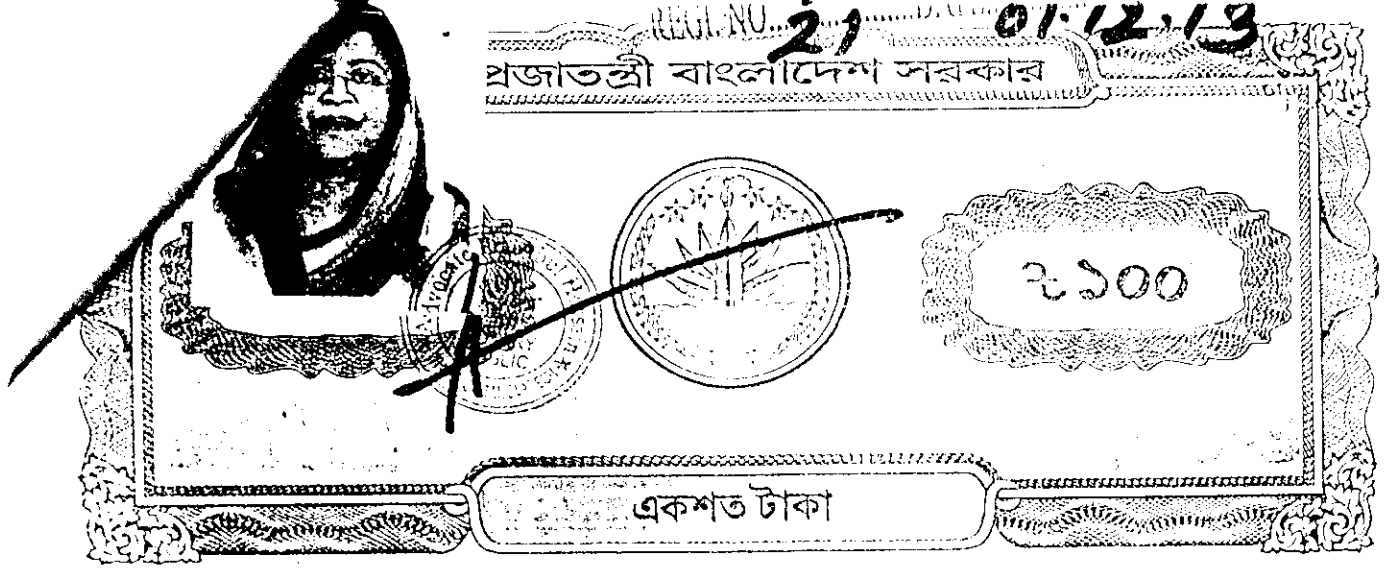 REGI. NO. 21 01.12.13
প্রজাতন্ত্রী বাংলাদেশ সরকার
৳১০০
একশত টাকা